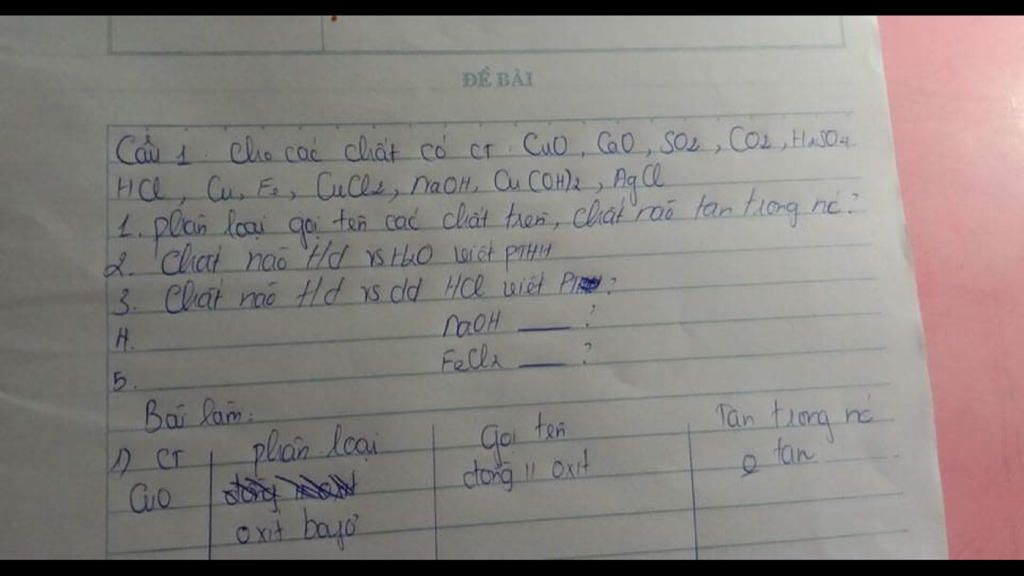 ĐỀ BÀI
Câu 1. Cho các chất có CT: CuO, CaO, SO2, CO2, H2SO4
HCl, Cu, Fe, CuCl2, NaOH, Cu(OH)2, AgCl
1. phân loại gọi tên các chất trên, chất nào tan trong nc?
2. Chất nào t/d vs H2O viết PTHH
3. Chất nào t/d vs dd HCl viết ?
4. NaOH ___ ?
5. FeCl2 ___ ?
Bài làm:
1) CT phân loại Gọi tên Tan trong nc
CuO đồng II oxit o tan
oxit bazơ